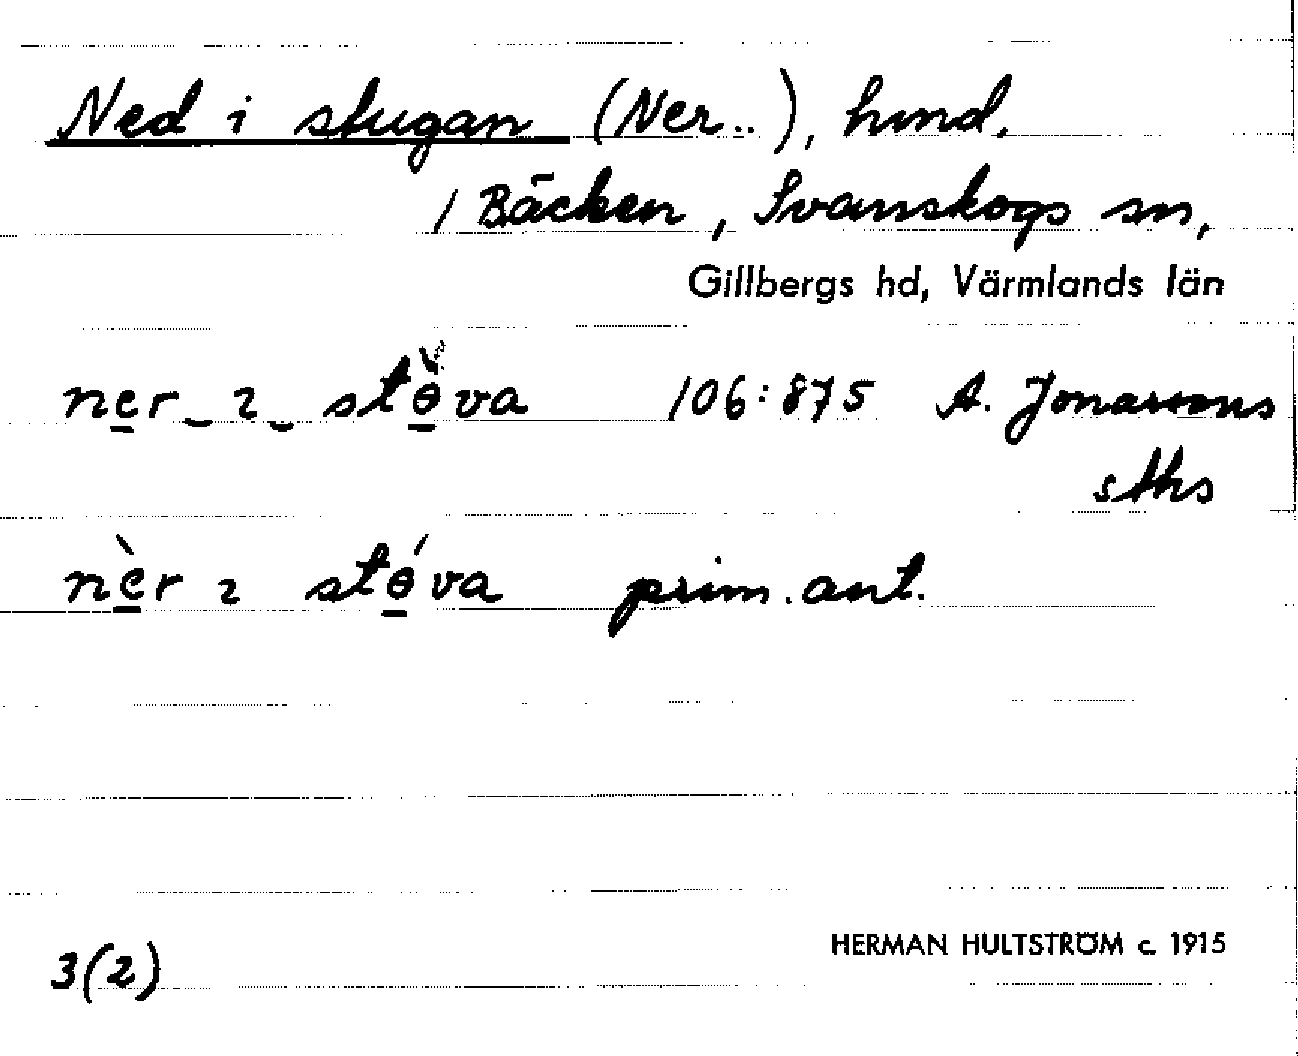 Ned i stugan (Ner..), hmd,
/ Bäcken, Svanskogs sn,
Gillbergs hd, Värmlands län
ner‿ɿ‿stɵ̠̀va 106:875 A. Jonassons
sths
nèr ɿ stɵ̠́va prim. ant.
3(2)
HERMAN HULTSTRÖM c. 1915